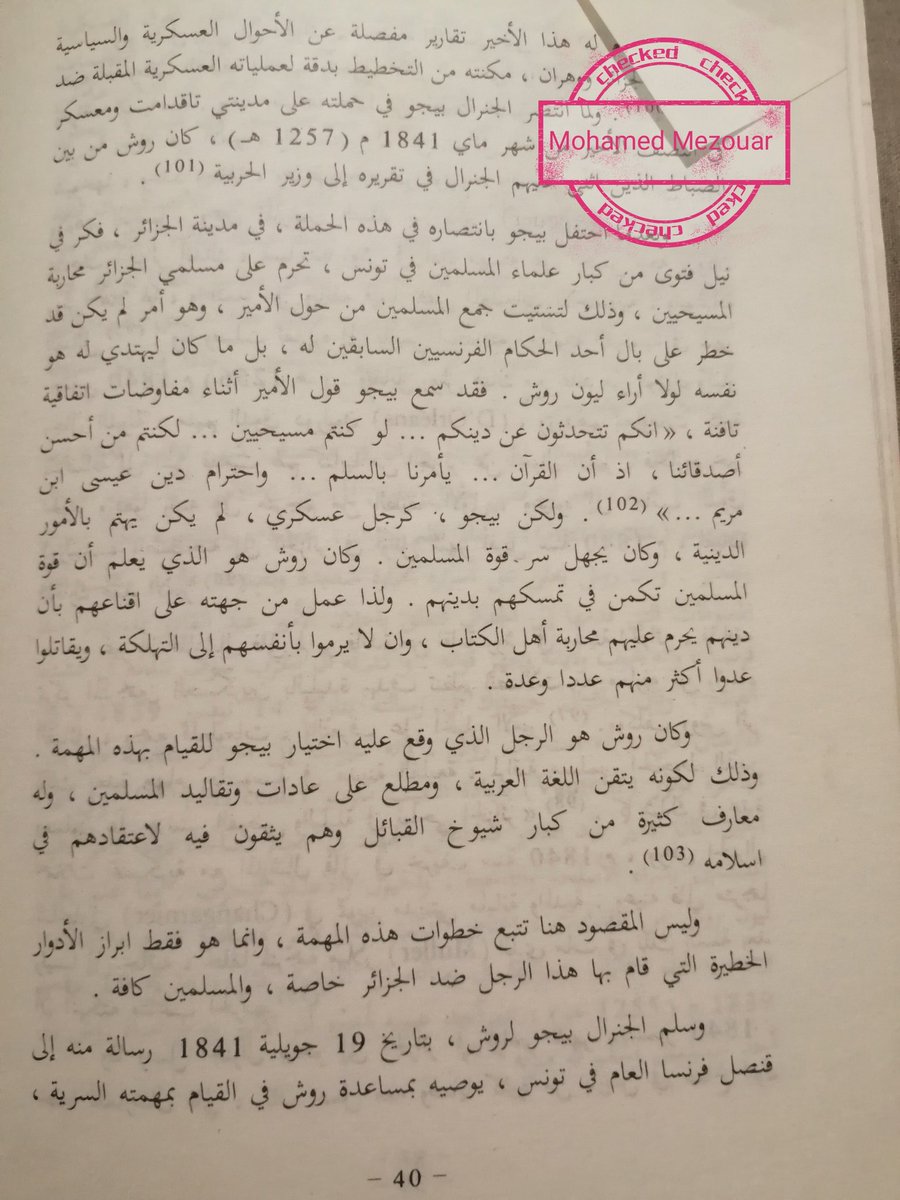 له هذا الأخير تقارير مفصلة عن الأحوال العسكرية والسياسية
ووهران ، مكنته من التخطيط بدقة لعملياته العسكرية المقبلة ضد
ولما انتصر الجنرال بيجو في حملته على مدينتي تاقدامت ومعسكر
شهر ماي 1841 م ( 1257 هـ ) ، كان روش من بين
الضباط الذين اثنى عليهم الجنرال في تقريره إلى وزير الحربية (101) .
احتفل بيجو بانتصاره في هذه الحملة ، في مدينة الجزائر ، فكر في
نيل فتوى من كبار علماء المسلمين في تونس ، تحرم على مسلمي الجزائر محاربة
المسيحيين ، وذلك لتشتيت جمع المسلمين من حول الأمير ، وهو أمر لم يكن قد
خطر على بال أحد الحكام الفرنسيين السابقين له ، بل ما كان ليهتدي له هو
نفسه لولا أراء ليون روش . فقد سمع بيجو قول الأمير أثناء مفاوضات اتفاقية
تافنة ، «انكم تتحدثون عن دينكم ... لو كنتم مسيحيين ... لكنتم من أحسن
أصدقائنا ، اذ أن القرآن ... يأمرنا بالسلم ... واحترام دين عيسى ابن
مريم ...» (102) . ولكن بيجو ، كرجل عسكري ، لم يكن يهتم بالأمور
الدينية ، وكان يجهل سر قوة المسلمين . وكان روش هو الذي يعلم أن قوة
المسلمين تكمن في تمسكهم بدينهم . ولذا عمل من جهته على اقناعهم بأن
دينهم يحرم عليهم محاربة أهل الكتاب ، وان لا يرموا بأنفسهم إلى التهلكة ، ويقاتلوا
عدوا أكثر منهم عددا وعدة .
وكان روش هو الرجل الذي وقع عليه اختيار بيجو للقيام بهذه المهمة .
وذلك لكونه يتقن اللغة العربية ، ومطلع على عادات وتقاليد المسلمين ، وله
معارف كثيرة من كبار شيوخ القبائل وهم يثقون فيه لاعتقادهم في
اسلامه (103) .
وليس المقصود هنا تتبع خطوات هذه المهمة ، وانما هو فقط ابراز الأدوار
الخطيرة التي قام بها هذا الرجل ضد الجزائر خاصة ، والمسلمين كافة .
وسلم الجنرال بيجو لروش ، بتاريخ 19 جويلية 1841 رسالة منه إلى
قنصل فرنسا العام في تونس ، يوصيه بمساعدة روش في القيام بمهمته السرية ،
– 40 –
checked checked
Mohamed Mezouar
checked checked